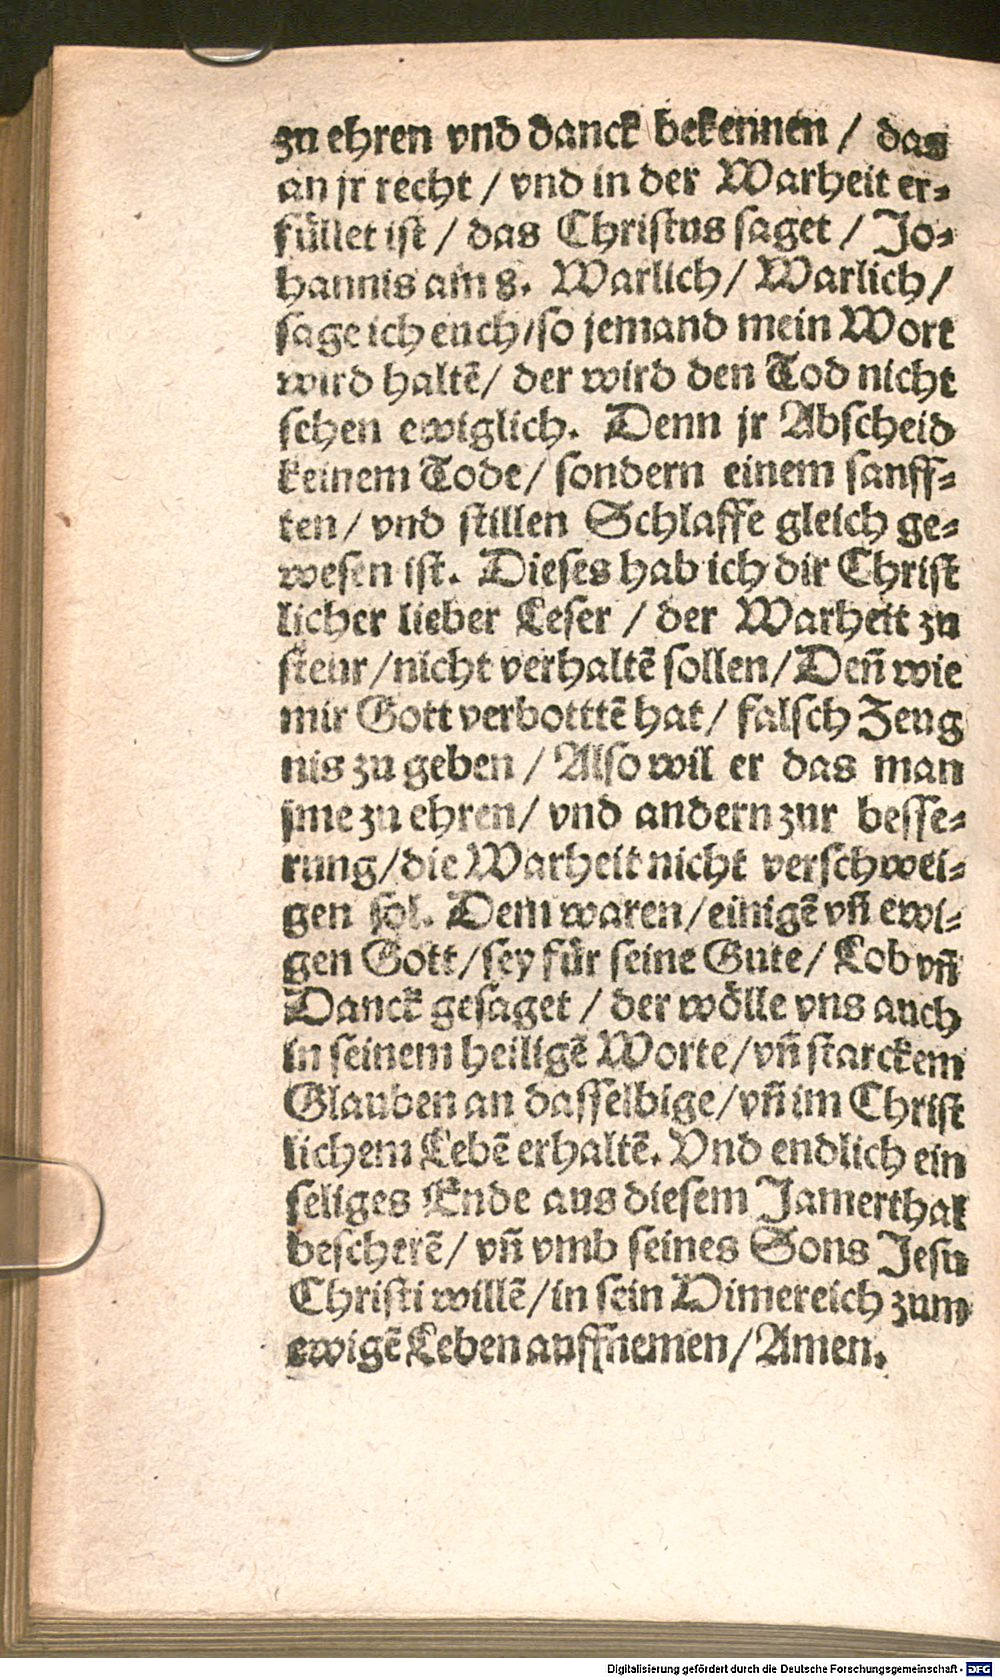 zu ehren vnd danck bekennen / das
an jr recht / vnd in der Warheit er⸗
füllet ist / das Christus saget / Jo⸗
hannis am 8. Warlich / Warlich /
sage ich euch / so jemand mein Wort
wird haltẽ / der wird den Tod nicht
sehen ewiglich. Denn jr Abscheid
keinem Tode / sondern einem sanff⸗
ten / vnd stillen Schlaffe gleich ge⸗
wesen ist. Dieses hab ich dir Christ
licher lieber Leser / der Warheit zu
steur / nicht verhaltẽ sollen / Deñ wie
mir Gott verbotttẽ hat / falsch Zeug
nis zu geben / Also wil er das man
jme zu ehren / vnd andern zur besse⸗
rung / die Warheit nicht verschwei⸗
gen sol. Dem waren / einigẽ vñ ewi⸗
gen Gott / sey für seine Gute / Lob vñ
Danck gesaget / der wölle vns auch
in seinem heiligẽ Worte / vñ starckem
Glauben an dasselbige / vñ im Christ
lichem Lebẽ erhaltẽ. Vnd endlich ein
seliges Ende aus diesem Jamerthal
bescherẽ / vñ vmb seines Sons Jesu
Christi willẽ / in sein Himereich zum
ewigẽ Leben auffnemen / Amen.
Digitalisierung gefördert durch die Deutsche Forschungsgemeinschaft - DFG